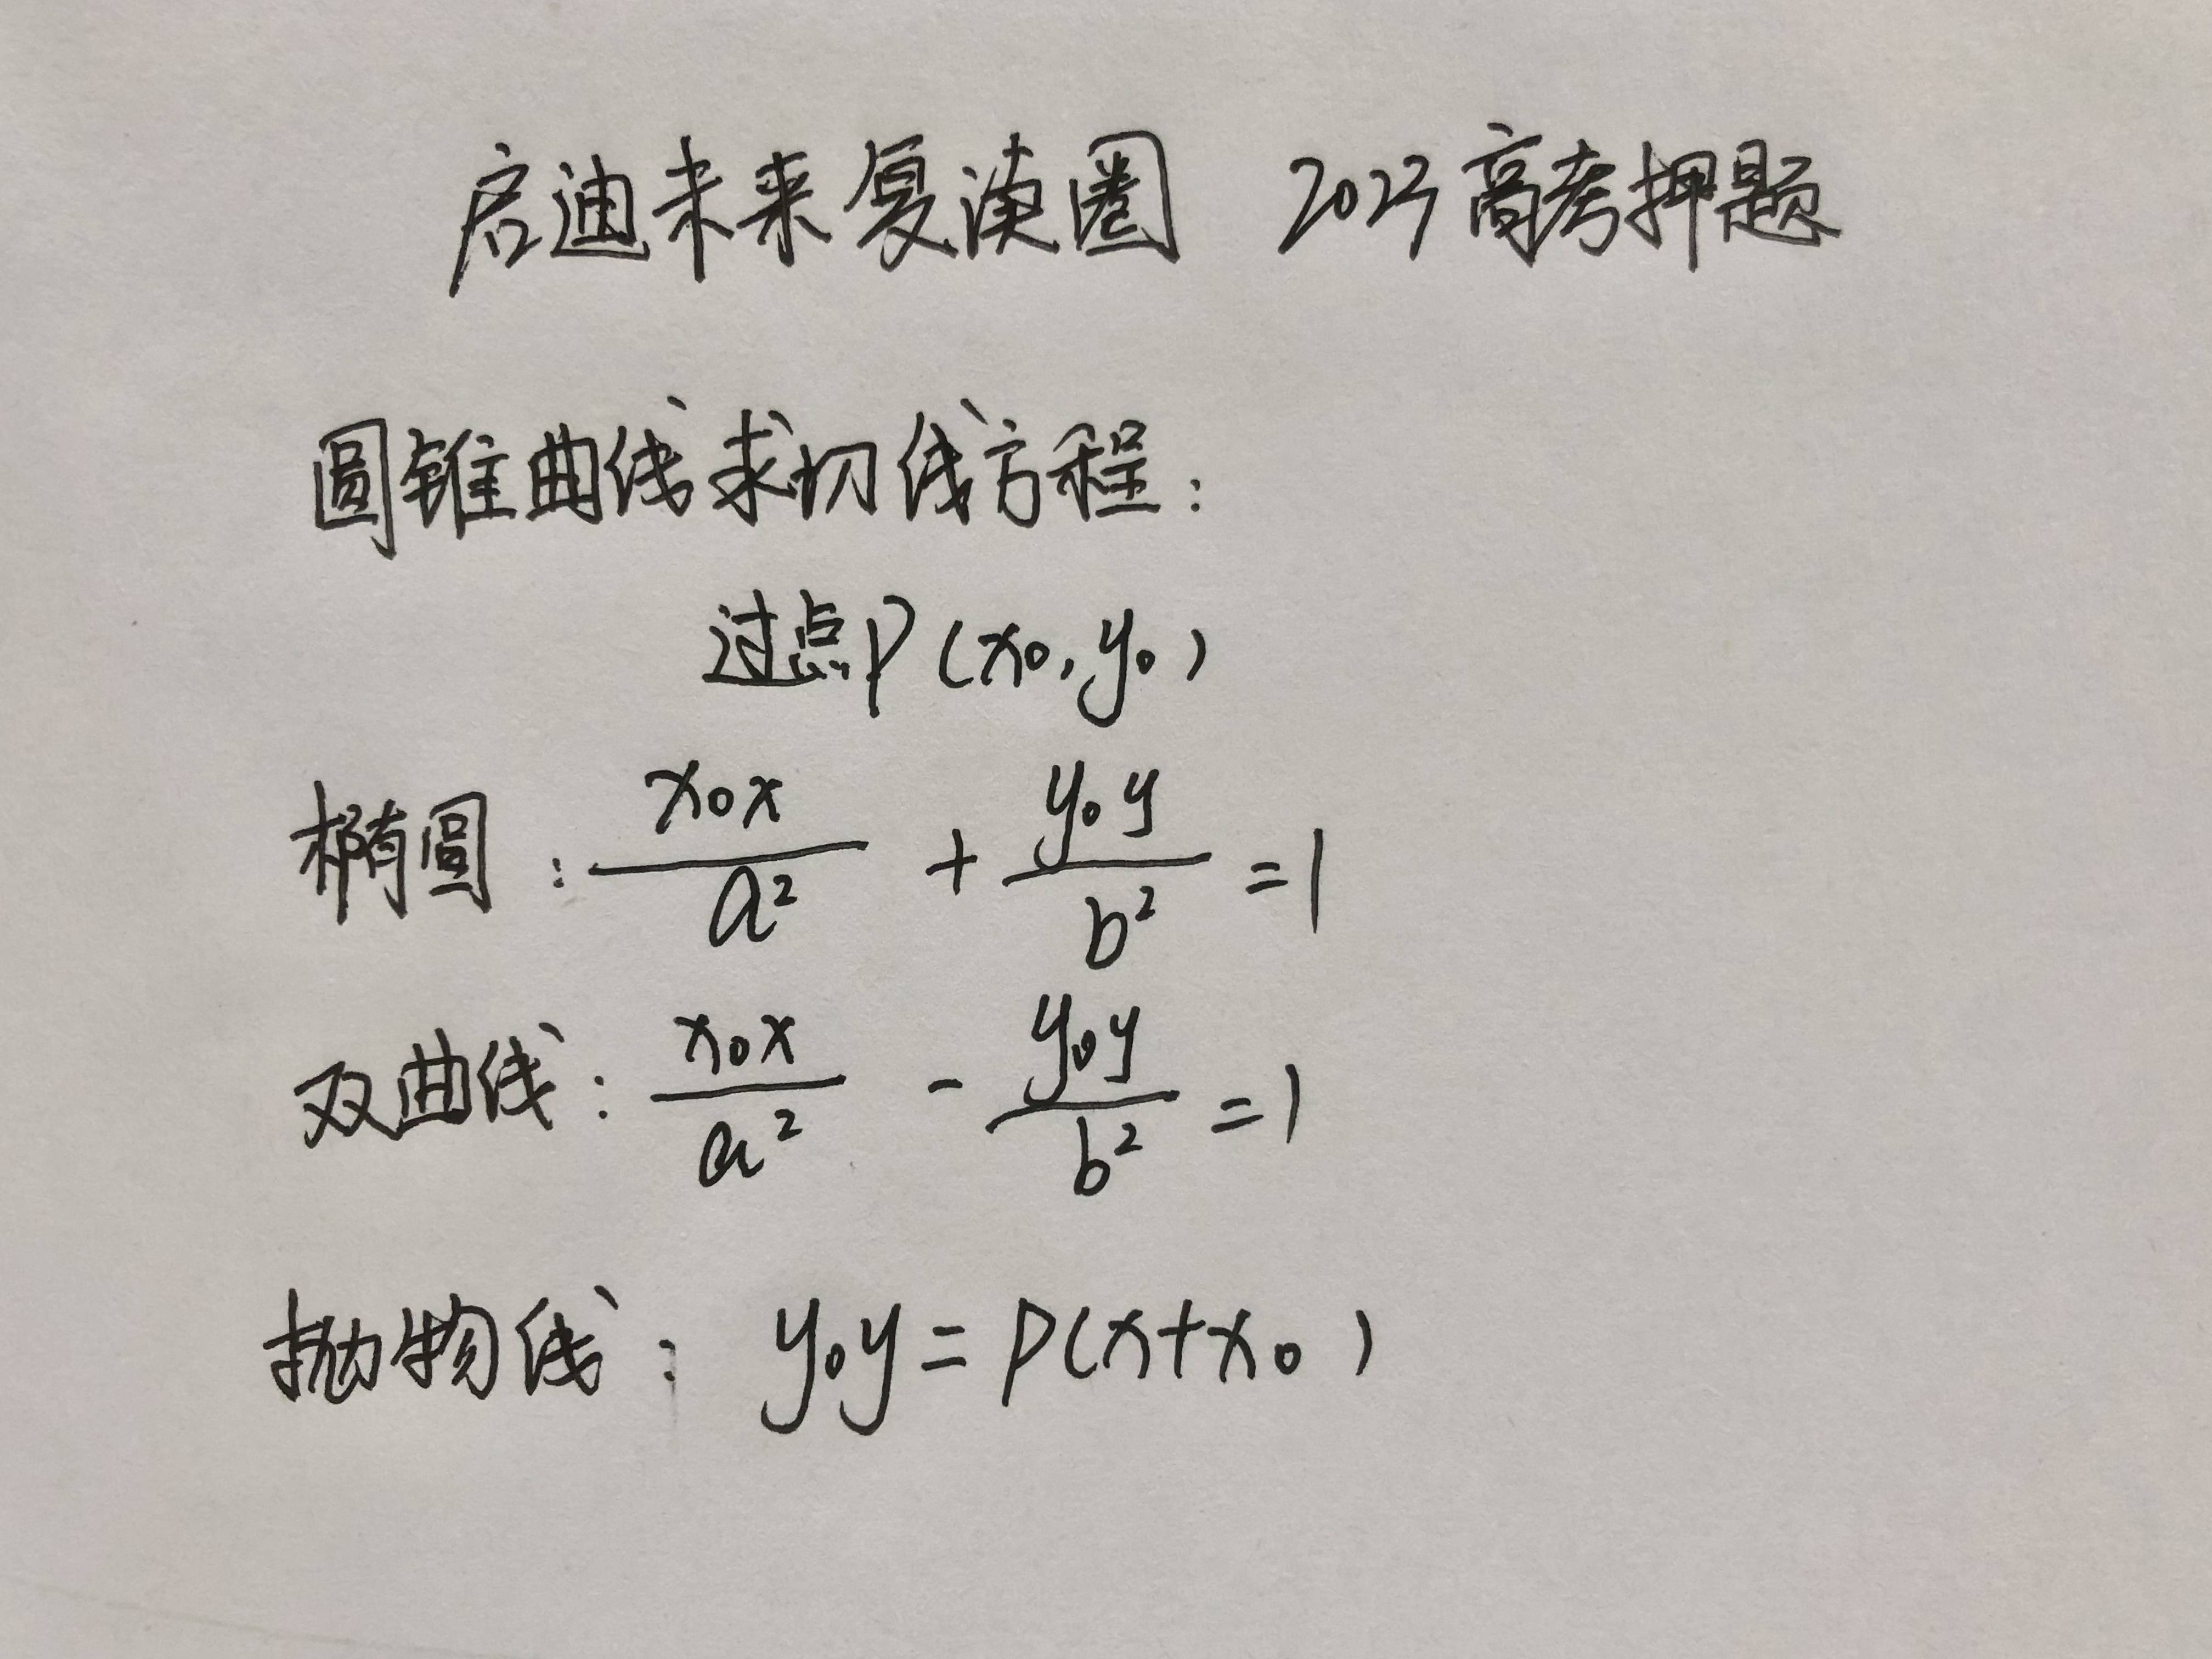 启迪未来复读圈 2023高考押题
圆锥曲线求切线方程:
过点P(x₀,y₀)
椭圆: x₀x/a² + y₀y/b² =1
双曲线: x₀x/a² - y₀y/b² =1
抛物线: y₀y=P(x+x₀)